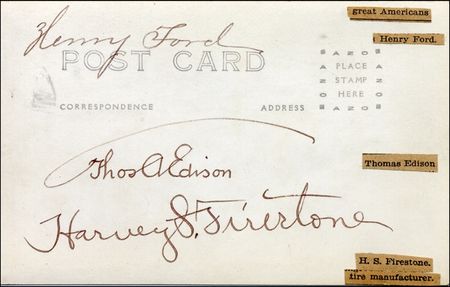 great Americans
Henry Ford
Henry Ford.
POST CARD
AZO
PLACE
STAMP
HERE
AZO
CORRESPONDENCE
ADDRESS
Thos A Edison
Thomas Edison
Harvey S. Firestone
H. S. Firestone.
tire manufacturer.